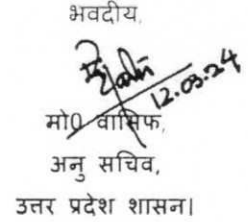 भवदीय,
12.03.24
मो0 वासिफ,
अनु सचिव,
उत्तर प्रदेश शासन।